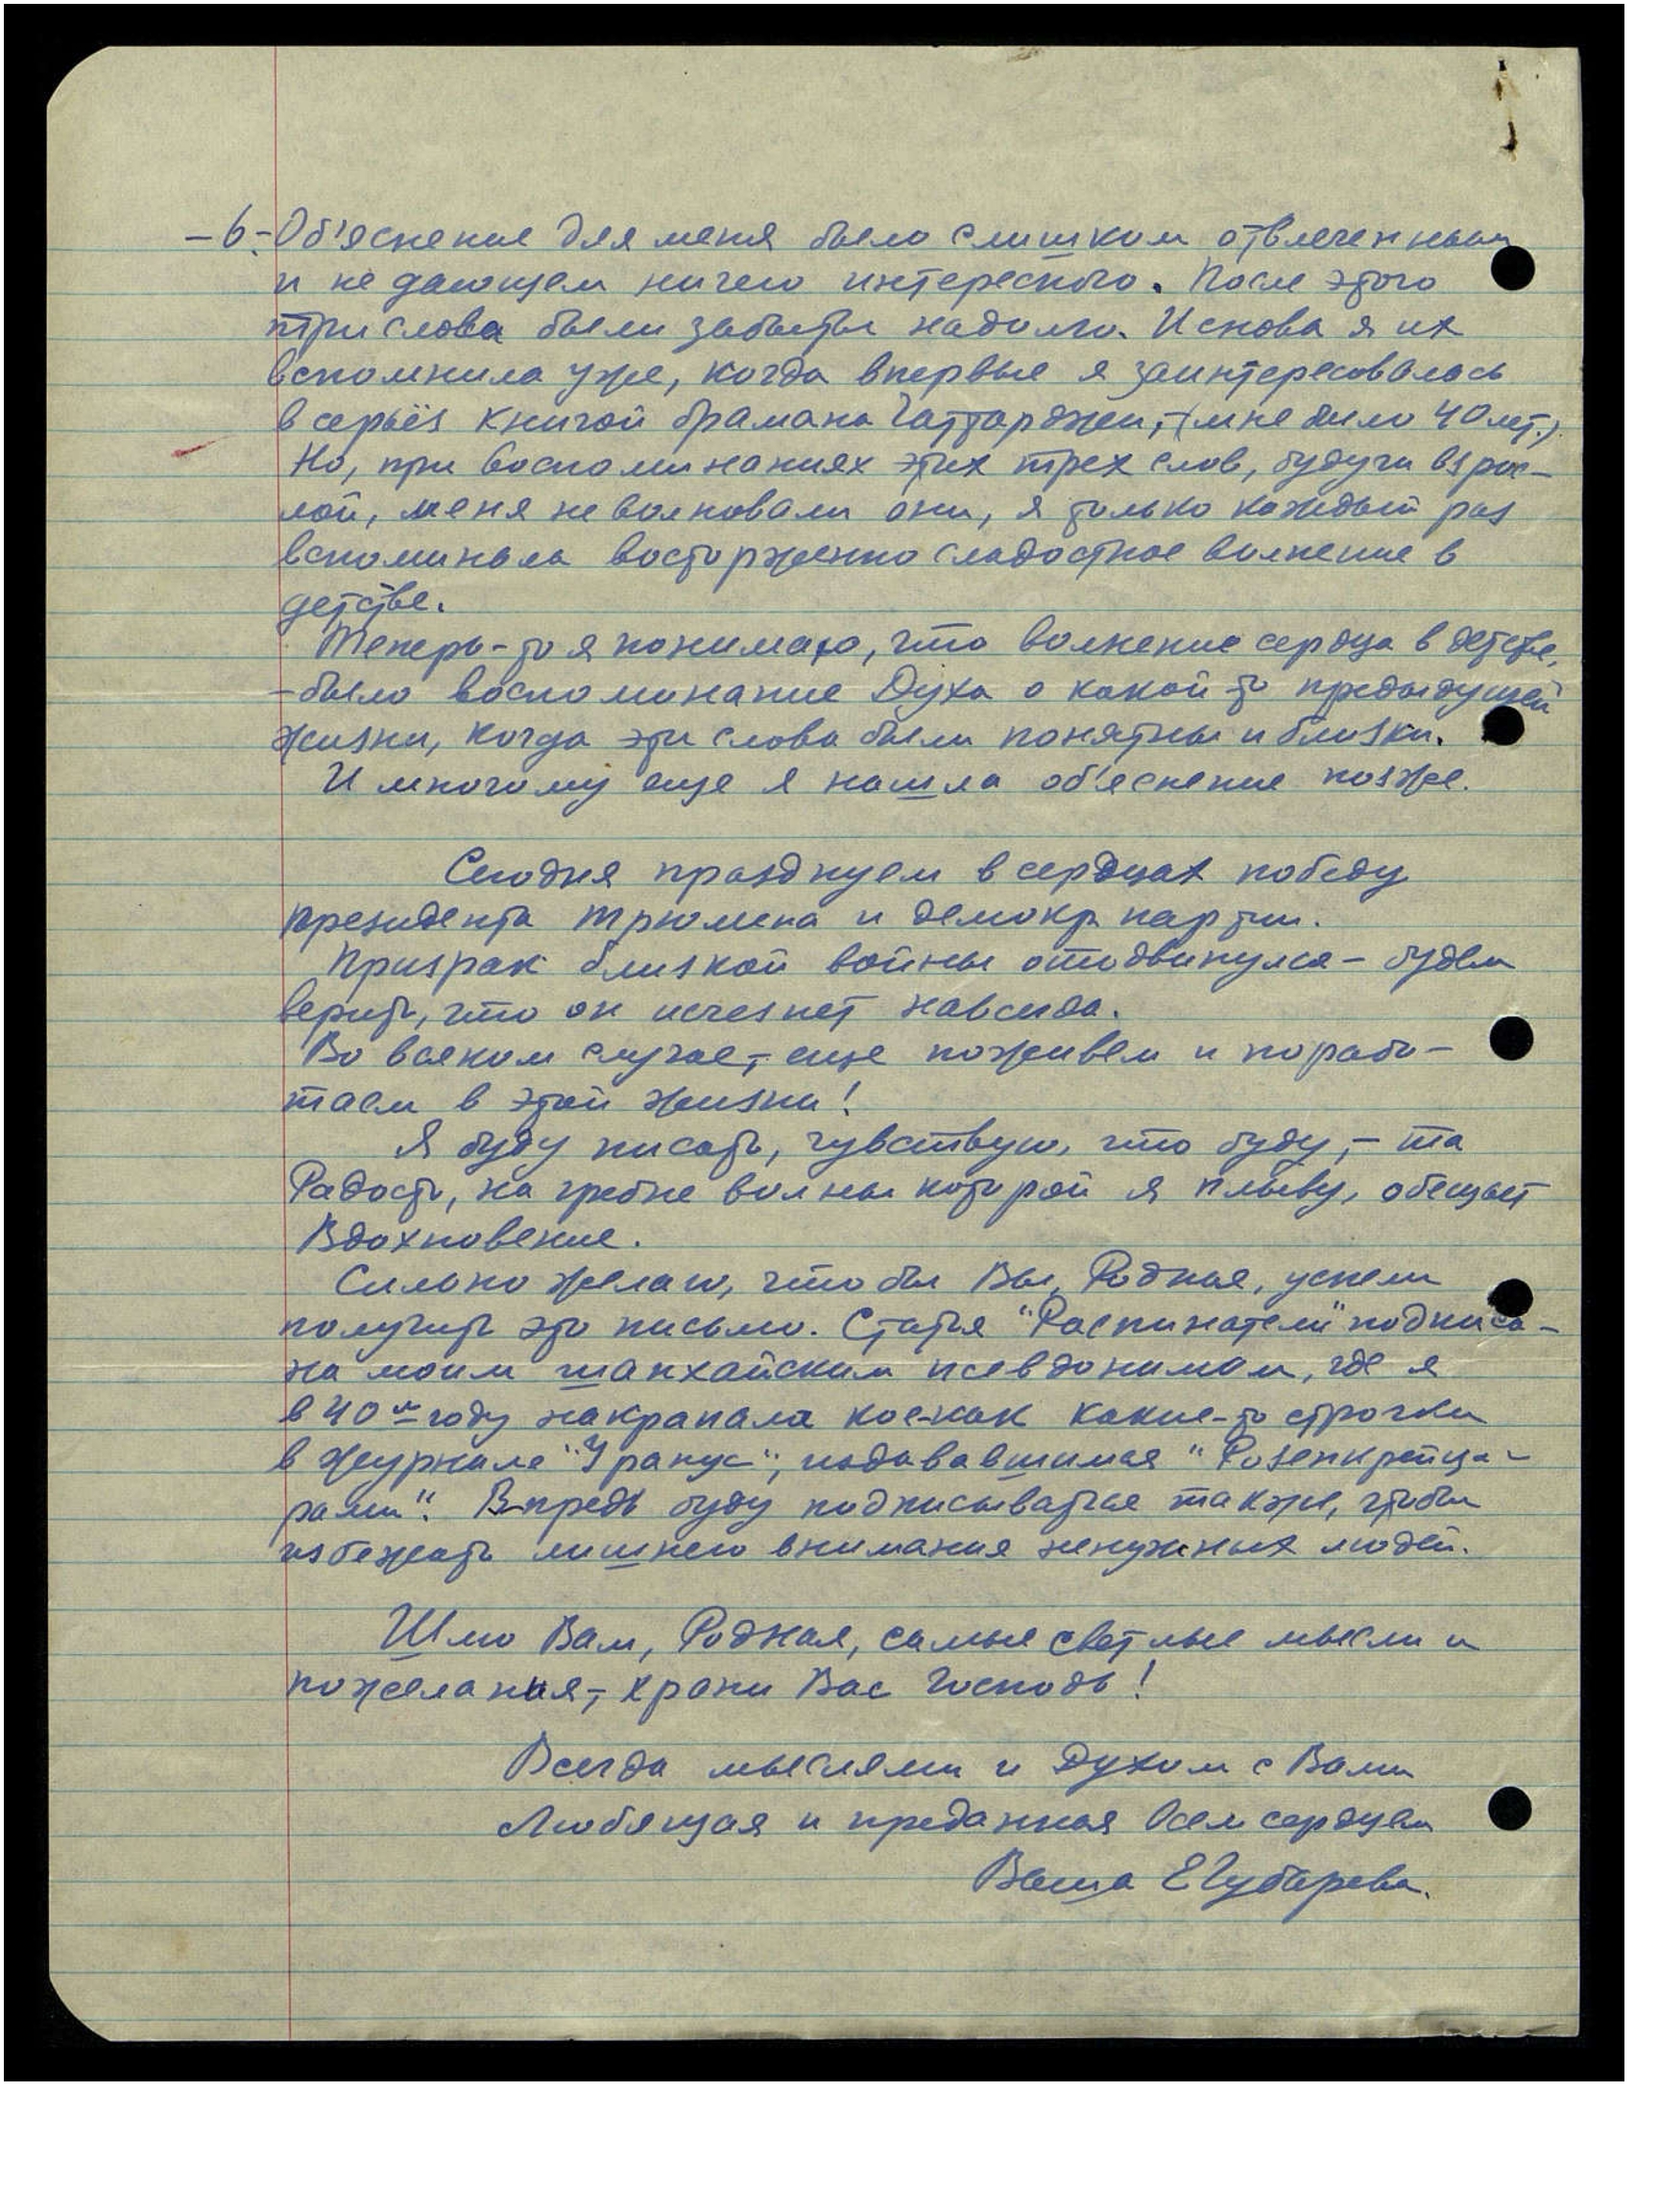 -6.- Об'яснение для меня было слишком отвлеченным
и не дающем ничего интересного. После этого
три слова были забыты надолго. И снова я их
вспомнила уже, когда впервые я заинтересовалась
в серьёз книгой брамана Чаттарджи,- (мне было 40 лет.)
Но, при воспоминаниях этих трех слов, будучи взрос-
лой, меня не волновали они, я только каждый раз
вспоминала восторженно сладостное волнение в
детстве.
Теперь-то я понимаю, что волнение сердца в детстве,
-было воспоминание Духа о какой то предыдущей
жизни, когда эти слова были понятны и близки.
И многому еще я нашла об'яснение позже.
Сегодня празднуем в сердцах победу
президента Трюмена и демокр. партии.
Призрак близкой войны отодвинулся - будем
верить, что он исчезнет навсегда.
Во всяком случае,- еще поживем и порабо-
таем в этой жизни!
Я буду писать, чувствую, что буду,- та
Радость, на гребне волны которой я плыву, обещает
Вдохновение.
Сильно желаю, что бы Вы, Родная, успели
получить это письмо. Статья "Распинатели" подписа-
на моим шанхайским псевдонимом, где я
в 40м году накрапала кое-как какие-то строчки
в журнале "Уранус", издававшимся "Розенкрейце-
рами". Впредь буду подписываться также, чтобы
избежать лишнего внимания ненужных людей.
Шлю Вам, Родная, самые светлые мысли и
пожелания,- храни Вас Господь!
Всегда мыслями и Духом с Вами
Любящая и преданная всем сердцем
Ваша Е Губарева.